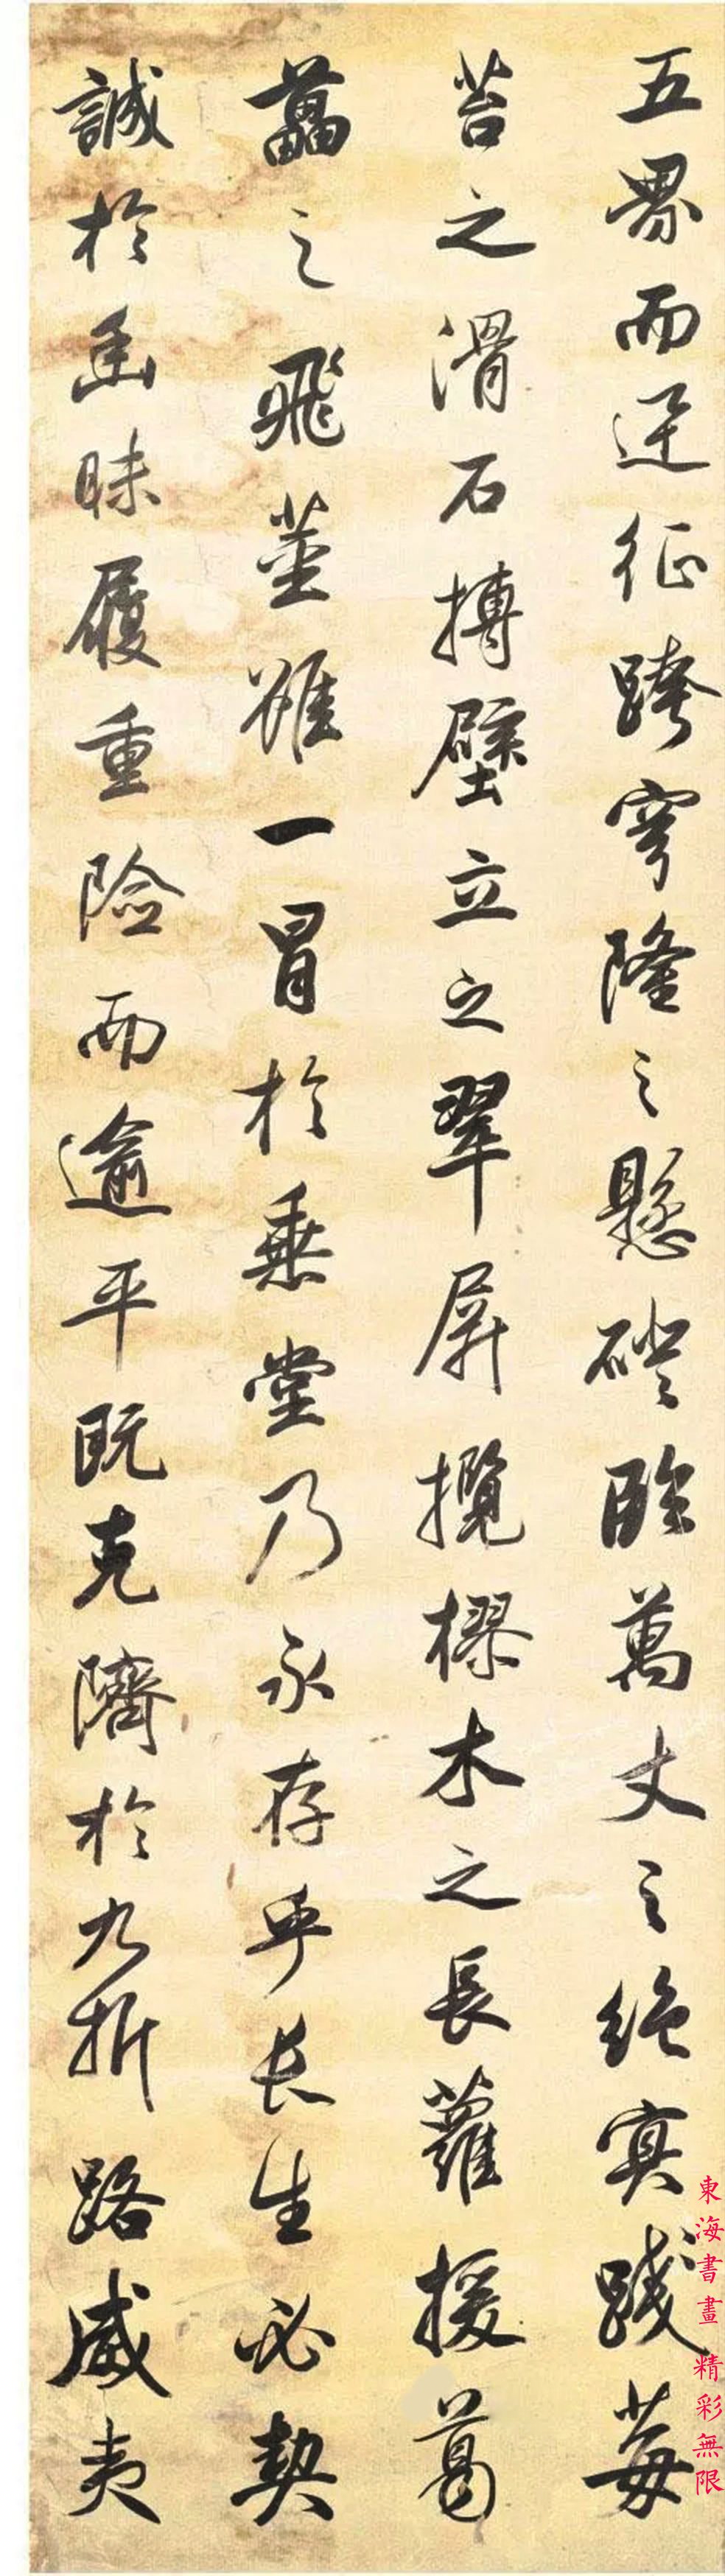 五界而迅征跨穹隆之懸磴臨萬丈之絕冥踐莓
苔之滑石搏壁立之翠屏攬樛木之長蘿援葛
藟之飛莖雖一冒於垂堂乃永存乎長生必契
誠於幽昧履重險而逾平既克隮於九折路威夷
東海書畫 精彩無限